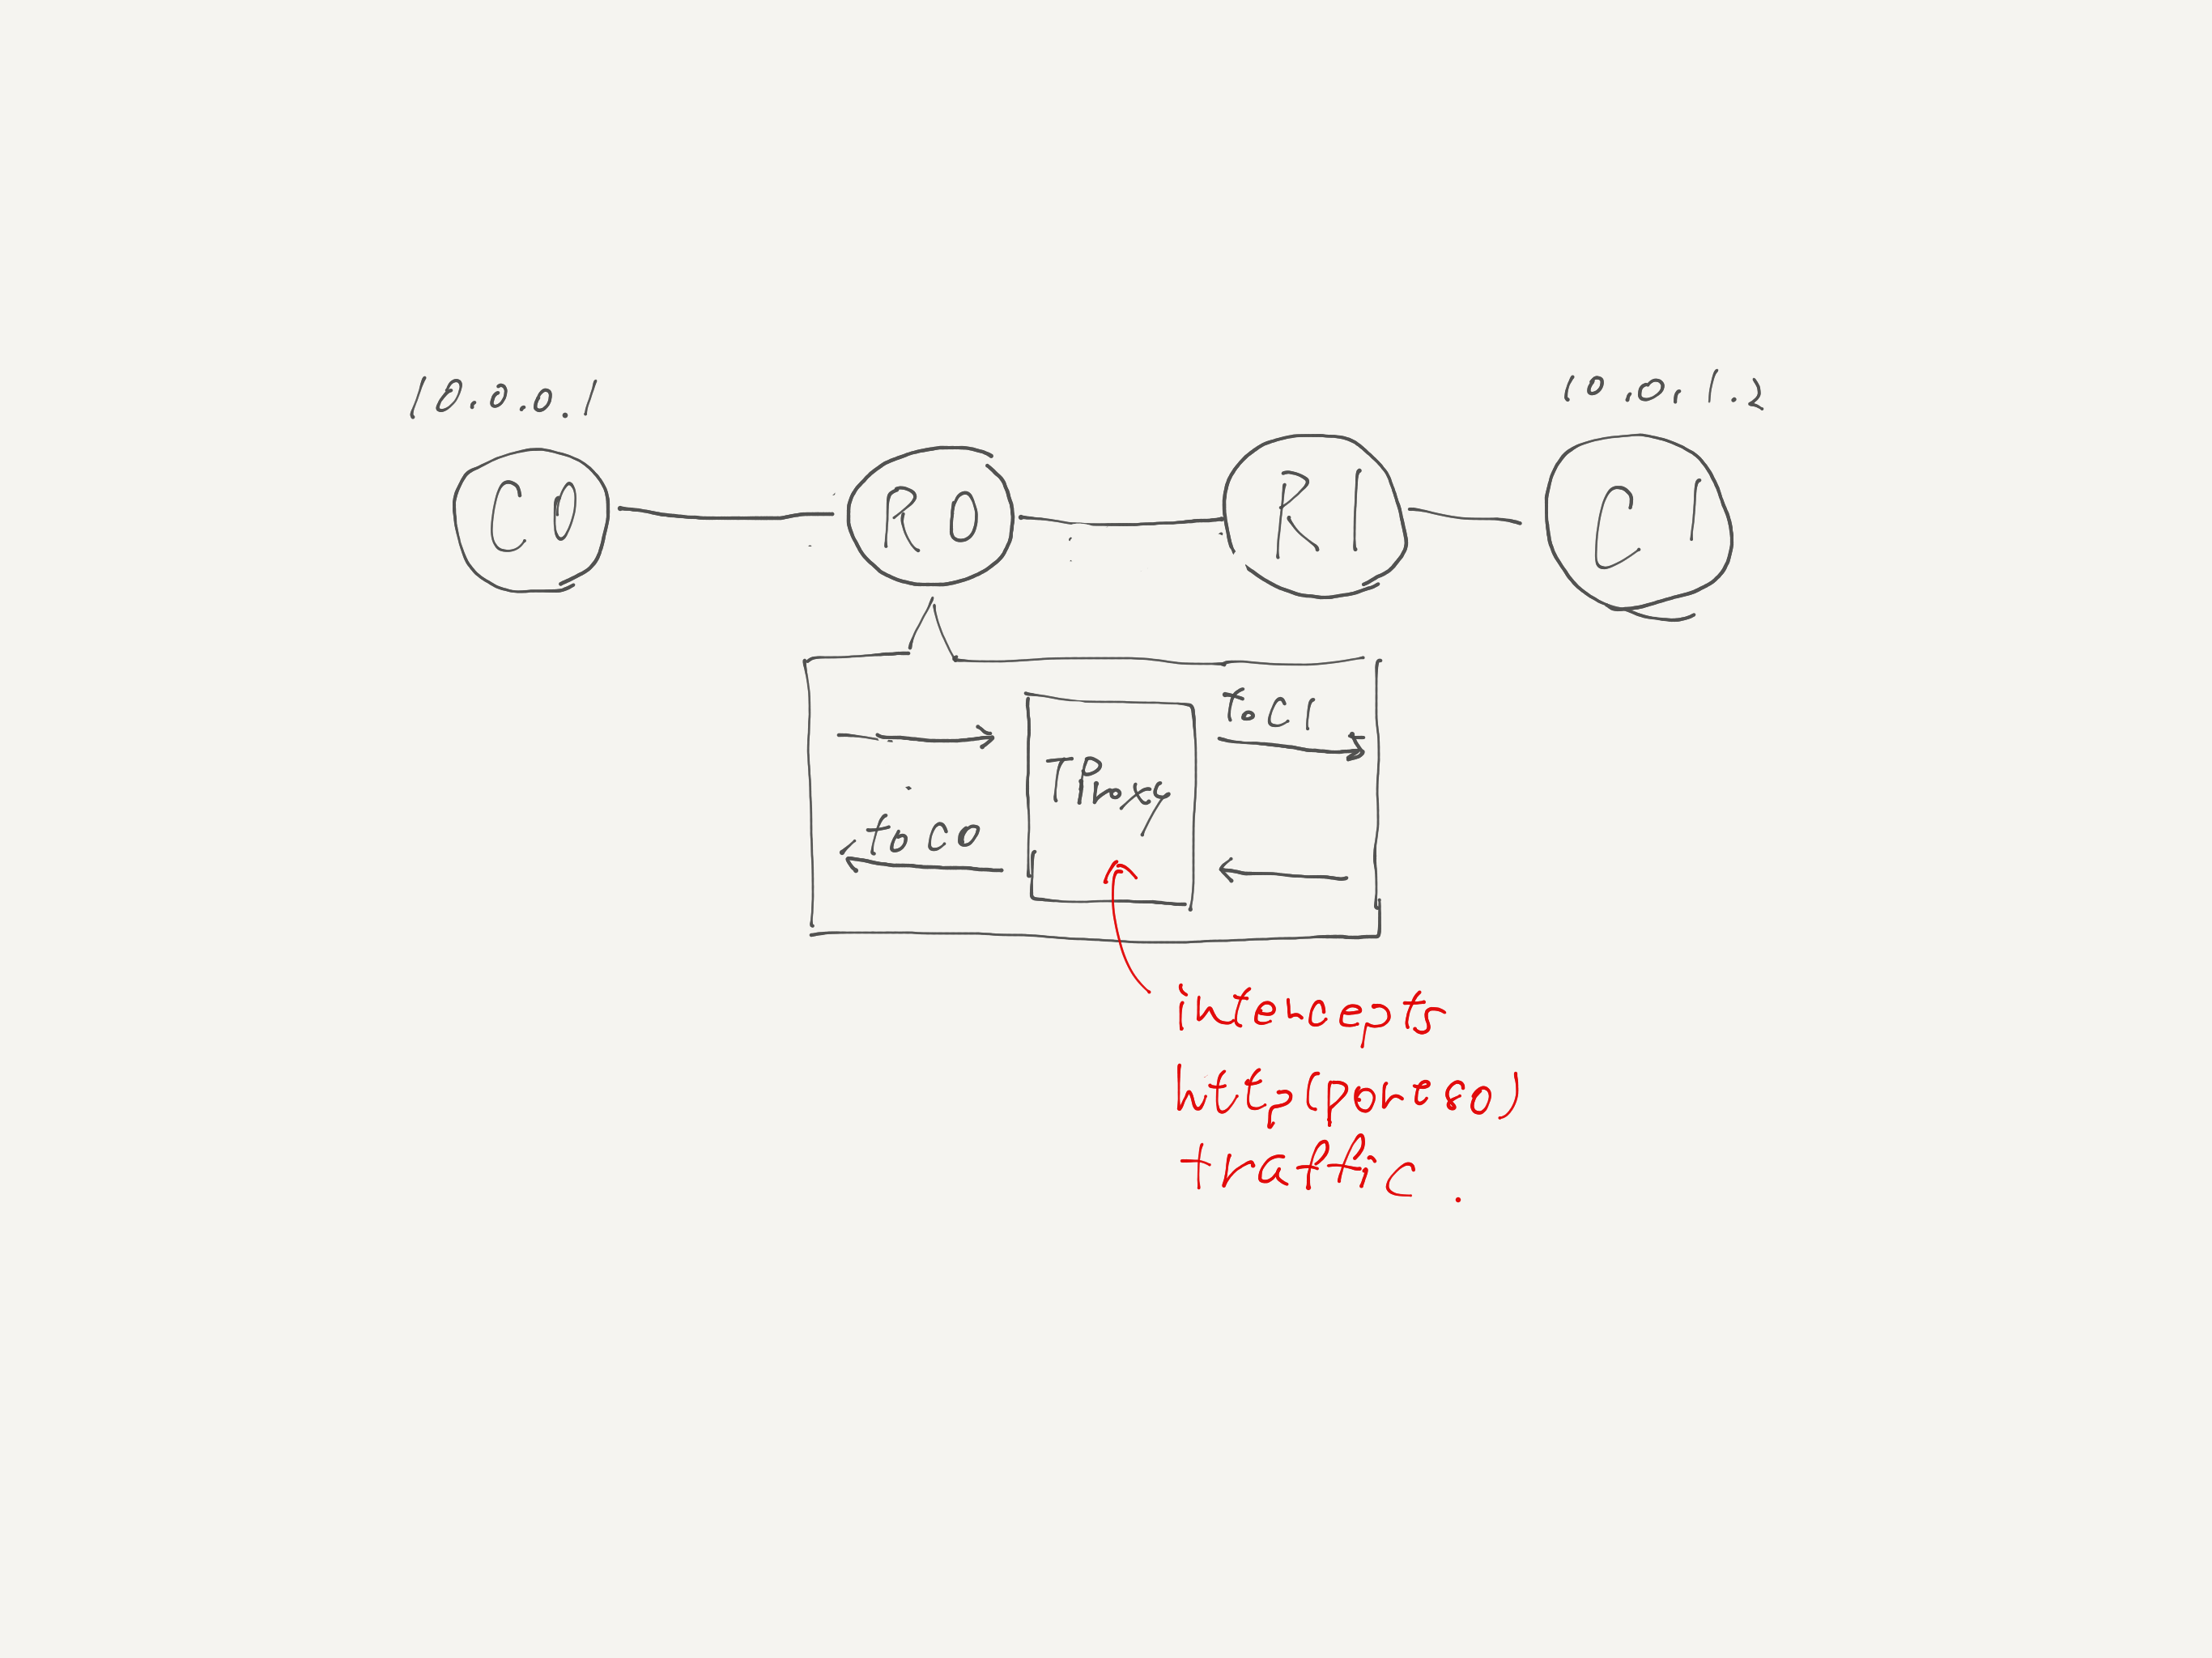 10.0.0.1
10.0.1.2
C0
R0
R1
C1
to C1
TProxy
to C0
intercepts
http(port80)
traffic.